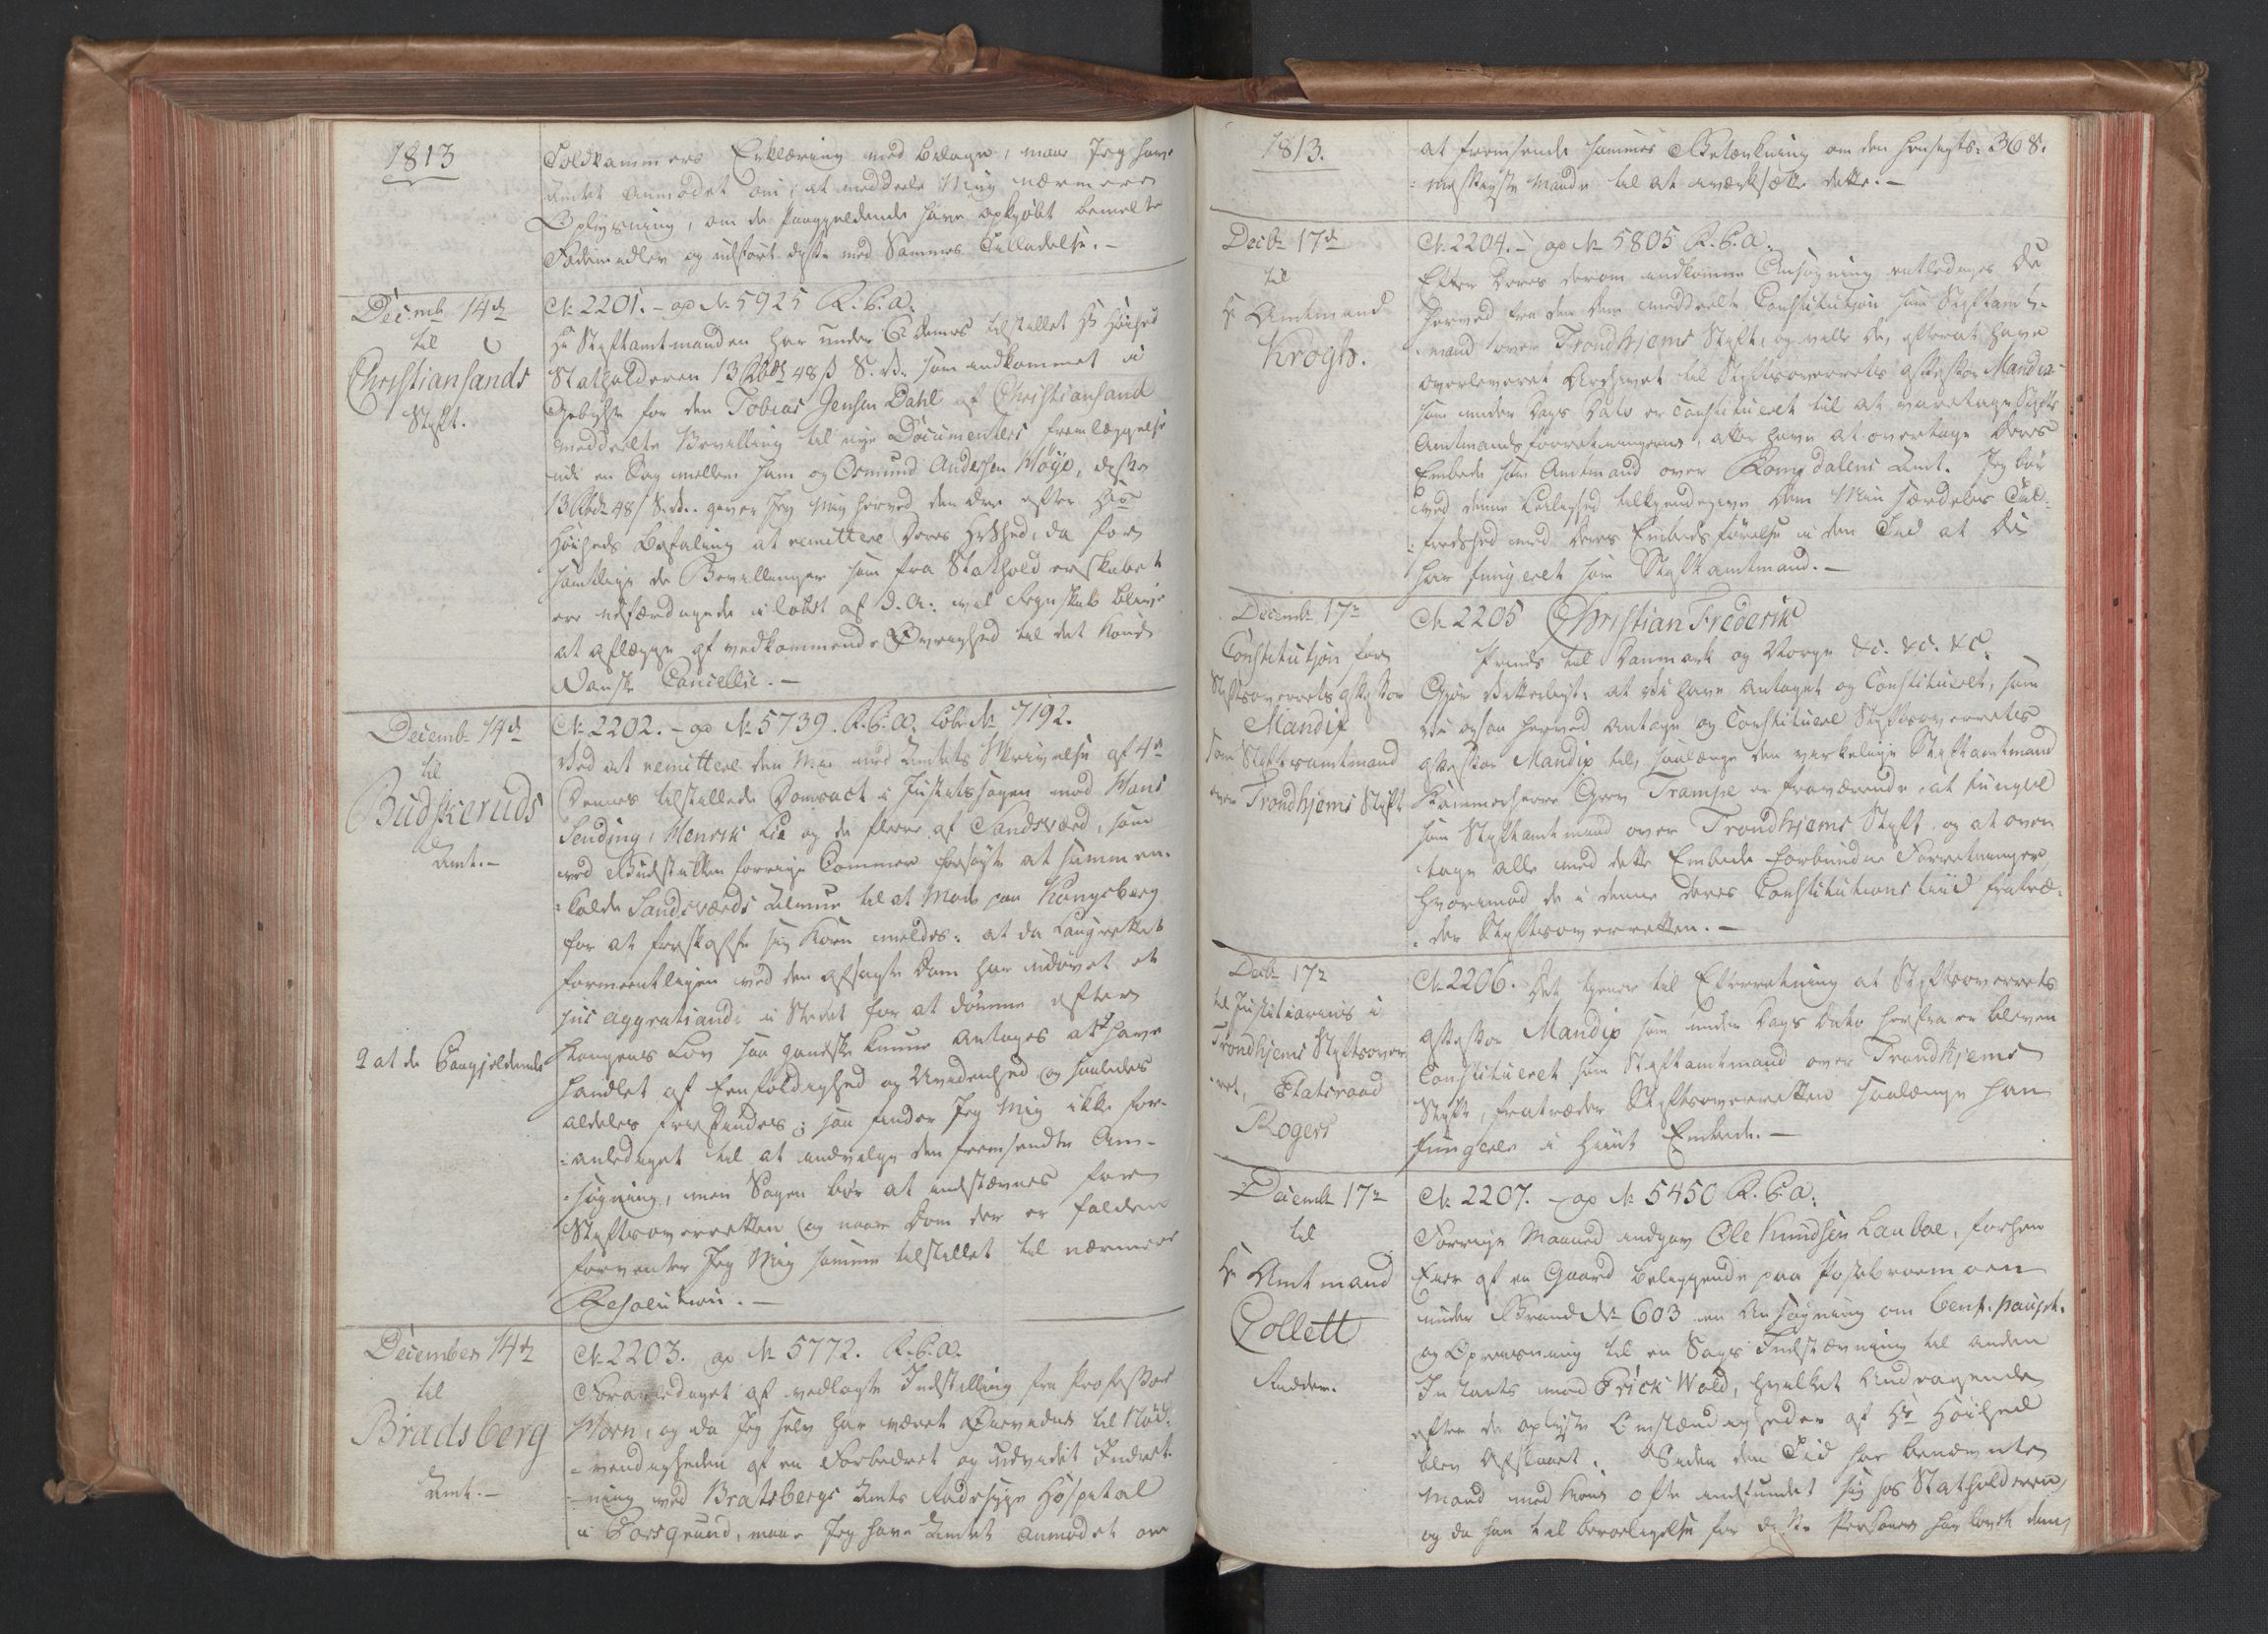 1813
Toldkammers Erklæring med Bilage, maae Jeg have
Amtet anmodet om, at meddeele Mig nærmere
Oplysning, om de Paagjeldende have opkjøbt bemelte
og udført disse med Sammes Tilladelse. –
Decemb. 14de
til
Christiansands
Stift.
No 2201. – ad No 5925 R. C. a.
Hr Stiftamtmanden har under 6 dennes tilstillet Hs Høihed
Statholderen 13 Rbd 48 ß S. V. som indkommet i
Gebyhr for den Tobias Jensen Dahl af Christiansand
meddeelte Bevilling til nye Documenters Fremlæggelse
udi en Sag mellem ham og Osmund Andersen Høye, disse
13 Rbd 48 ß S. V. giver Jeg Mig herved den Ære efter Hs
Høiheds Befaling at remittere Deres Høihed, da for
samtlige de Bevillinger som fra Statholderskabet
ere udfærdigede i Løbet af d. A. vil Regnskab blive
at aflægge af vedkommende Øvrighed til det Kongl.
Danske Cancellie. –
Decemb. 14de
til
Budskeruds
Amt. –
No 2202. – ad No 5739. R. C. a. Lob. No 7192.
Ved at remittere den Mig med Amtets Skrivelse af 4de
Dennes tilstillede Domsact i Justitssagen mod Hans
Sending, Henrik Lie og de flere af Sandsværd, som
ved Budstikken forrige Sommer forsøgte at sammen-
kalde Sandsværds Almue til at møde paa Kongsberg
for at forskaffe sig Korn meldes: at da Laugrettet
formeentligen ved den afsagte Dom har udøvet et
jus aggratiandi i Stedet for at dømme efter
Kongens Lov saa ganske kunne antages at have
2 at de Paagjeldende
handlet af Eenfoldighed og Uvidenhed og saaledes
aldeles frifindes; saa finder Jeg Mig ikke for-
anlediget til at indvilge den fremsendte An-
søgning, men Sagen bør at indstævnes for
Stiftsoverretten og naar Dom der er falden
forventer Jeg Mig samme tilstillet til nærmere
Resolution. –
December 14de
til
Bradsberg
Amt. –
No 2203. ad No 5772. R. C. a.
Foranlediget af vedlagte Indstilling fra Professor
Thorn, og da Jeg selv har været Øievidne til Nød-
vendigheden af en Forbedret og udvidet Indret-
ning ved Bratsbergs Amts Radesyge Hospital
i Porsgrund, maae Jeg have Amtet anmodet om
1813.
at fremsende sammes Betænkning om den hensigts-
368.
mæssigste Maade til at iværksætte dette. –
Decbr 17de
til
Hr Amtmand
Krogh.
No 2204. – ad No 5805 R. C. a.
Efter Deres derom indkomne Ansøgning entlediges De
herved fra den Dem meddeelte Constitution som Stiftamt-
mand over Trondhjems Stift, og ville De, efterat have
overleveret Archivet til Stiftsoverrets Assessor Mandix
som under Dags Dato er constitueret til at varetage Stift-
Amtmandsforretningerne, atter have at overtage Deres
Embede som Amtmand over Romsdalens Amt. Jeg bør
ved denne Leilighed tilkjendegive Dem Min særdeles Til-
fredshed med Deres Embedsførelse i den Tid at De
har fungeret som Stiftamtmand. –
Decemb 17de
Constitution for
Stiftsoverrets Assessor
Mandix
som Stiftsamtmand
over Trondhjems Stift
No 2205 Christian Frederik
Prinds til Danmark og Norge &c. &c. &c.
Gjør vitterligt: at Vi have antaget og Constitueret, som
Vi ogsaa herved antage og Constituere Stiftsoverrets
Assessor Mandix til, saalænge den virkelige Stiftamtmand
Kammerherre Grev Trampe er fraværende, at fungere
som Stiftamtmand over Trondhjems Stift, og at over
tage alle med dette Embede forbundne Forretninger,
hvorimod de i denne Deres Constitutions Tiid fratræ-
der Stiftsoverretten. –
Decbr 17de
til Justitiarius i
Trondhjems Stiftsover
ret, Etatsraad
Rogert
No 2206. Det tjener til Efterretning at Stiftsoverrets
Assessor Mandix som under Dags Dato herfra er bleven
Constitueret som Stiftamtmand over Trondhjems
Stift, fratræder Stiftsoverretten saalænge han
fungerer i hiint Embede. –
Decemb 17de
til
Hr Amtmand
Collett
No 2207. – ad No 5450 R. C. a.
Forrige Maaned indgav Ole Knudsen Lauboe, forhen
Eier af en Gaard beliggende paa
under Brand No 603 en Ansøgning om benf. paupert.
og Opreisning til en Sags Indstævning til anden
Instants mod Erick Wold, hvilket Andragende
efter de oplyste Omstændigheder af Hs Høihed
blev Afslaaet. Siden den Tid har benævnte
Mand med Kone ofte indfundet sig hos Statholderen,
og da han til Beroeligelse for disse Personer har lovet dem,